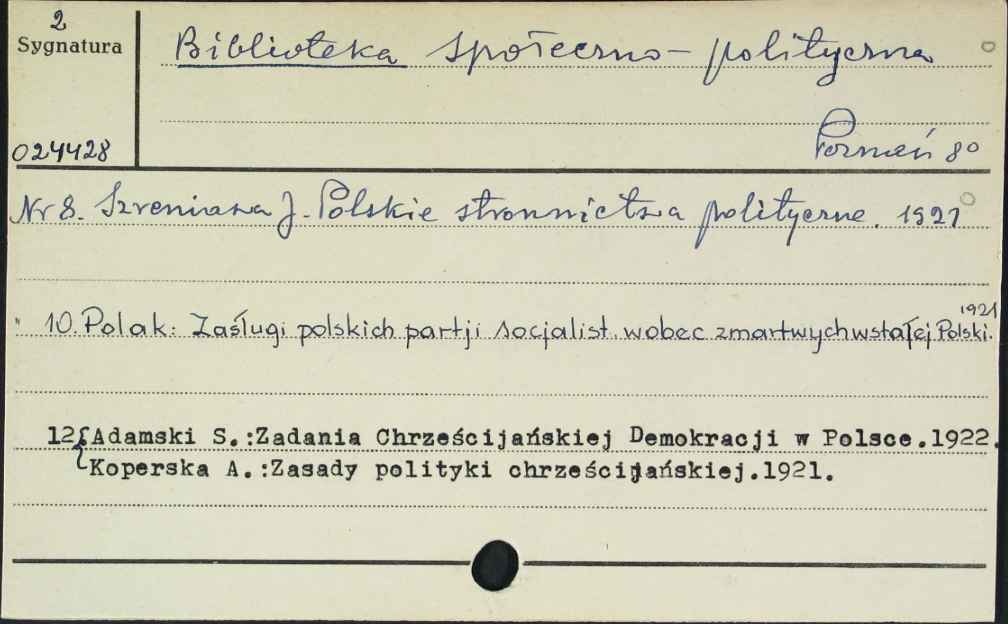 2
Sygnatura
Biblioteka społeczno-polityczna
024428
Poznań 8°
Nr 8. Szreniawa J. Polskie stronnictwa polityczne. 1921
" 10. Polak: Zasługi polskich partji socjalist. wobec zmartwychwstałej Polski. 1921
12{Adamski S.:Zadania Chrześcijańskiej Demokracji w Polsce.1922.
Koperska A.:Zasady polityki chrześcijańskiej.1921.